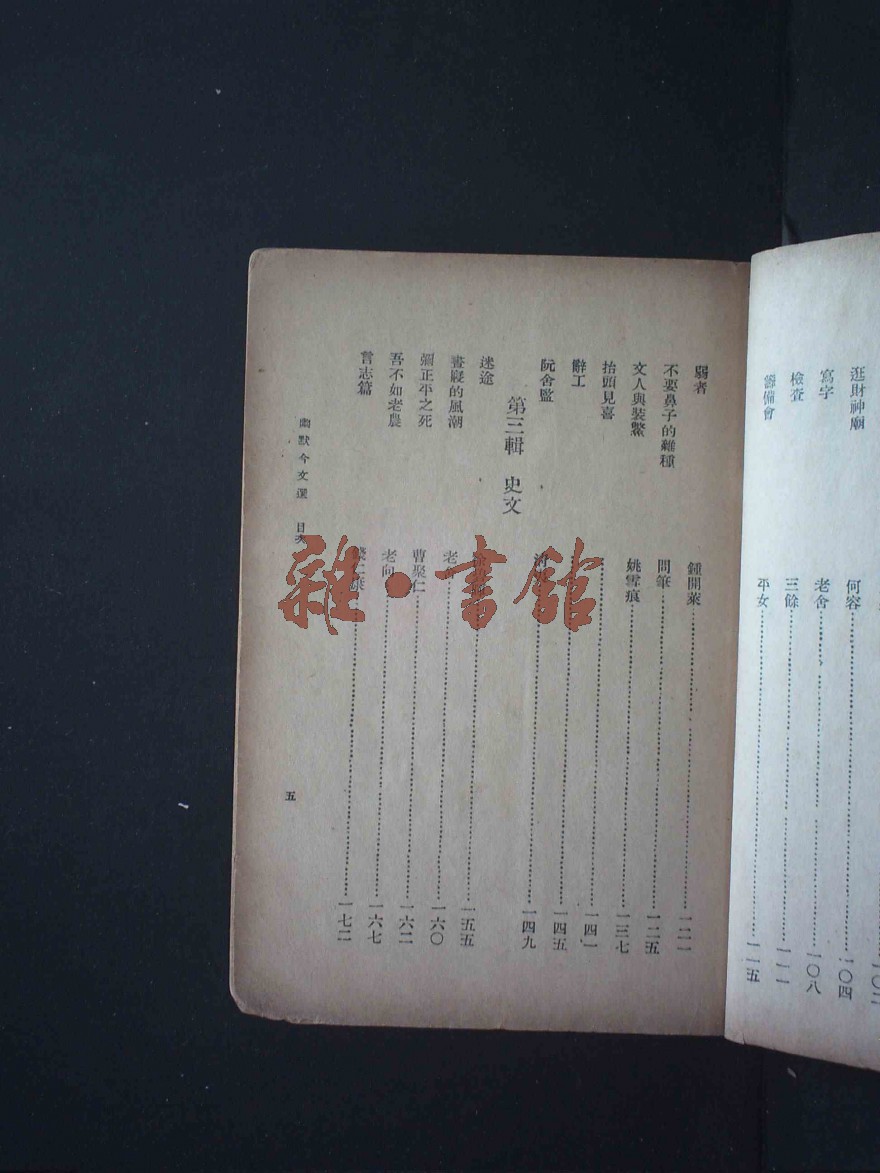 逛財神廟 何容 一〇四
寫字 老舍 一〇八
檢查 三餘 一一一
籌備會 平女 一一五
弱者 鍾開萊 一二一
不要鼻子的雜種 問筆 一二五
文人與裝鱉 姚雪痕 一三七
抬頭見喜 一四一
辭工 一四五
阮舍監 一四九
第三輯 史文
迷途 一五五
晝寢的風潮 老 一六〇
禰正平之死 曹聚仁 一六二
吾不如老農 老向 一六七
言志篇 一七二
幽默今文選 目次
五
雜·書館